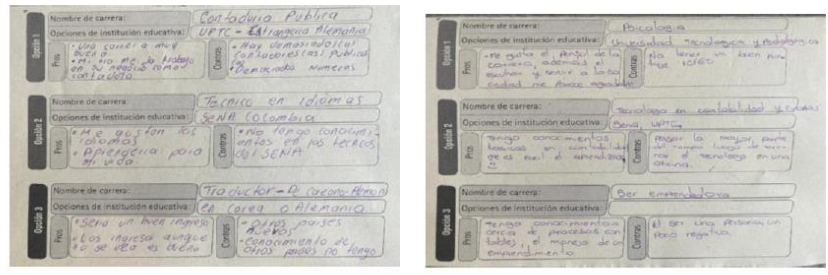 Opción 1
Nombre de carrera: Contaduria Publica
Opciones de institución educativa: UPTC - Alemania
Pros
• Una carrera muy buena
• Mi tio me da trabajo
en su negocio como
contadora
Contras
• Hay demasiados(as)
contadores(as) publicos
• Demasiados numeros
Opción 2
Nombre de carrera: Tecnico en idiomas
Opciones de institución educativa: SENA Colombia
Pros
• Me gustan los
idiomas
para
mi vida
Contras
• No tengo conocimi-
entos en los tecnicos
del SENA
Opción 3
Nombre de carrera: Traductor - De
Opciones de institución educativa: en Corea o Alemania
Pros
• Seria un buen ingreso
• Los ingresa aunque
no se vea es bueno
Contras
• Otros paises
nuevos
• conocimiento de
otros paises no tengo
Opción 1
Nombre de carrera: Psicologia
Opciones de institución educativa: Universidad Tecnologica y Pedagogica
Pros
me gusta el de la
carrera, además el
escuchar y servir a la so
ciedad me
Contras
No tener un buen pun
taje ICFES
Opción 2
Nombre de carrera: Tecnologo en contabilidad y
Opciones de institución educativa: Sena, UPTC
Pros
Tengo conocimientos
basicos en contabilidad
el aprendizaje
Contras
pasar la mayor parte
del tiempo luego de
el tecnologo en una
oficina.
Opción 3
Nombre de carrera: Ser emprendedora
Opciones de institución educativa:
Pros
Tengo conocimientos
de procesos con
tables, el manejo de un
emprendimiento
Contras
El ser una persona un
poco negativa.